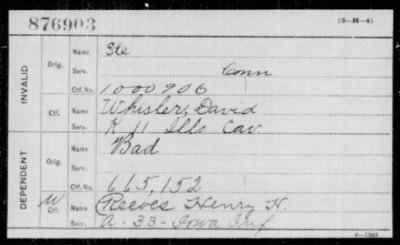 876903
(3-H-4)
INVALID
Orig.
Name
Ste
Serv.
Conn
Ctf. No.
1000906
Ctf.
Name
Whisler, David
Serv.
K 11 Ills Cav
DEPENDENT
Orig.
Name
Bad
Serv.
Ctf. No.
665,152
W
Ctf.
Name
Reeves Henry H.
Serv.
A-33-Iowa Inf